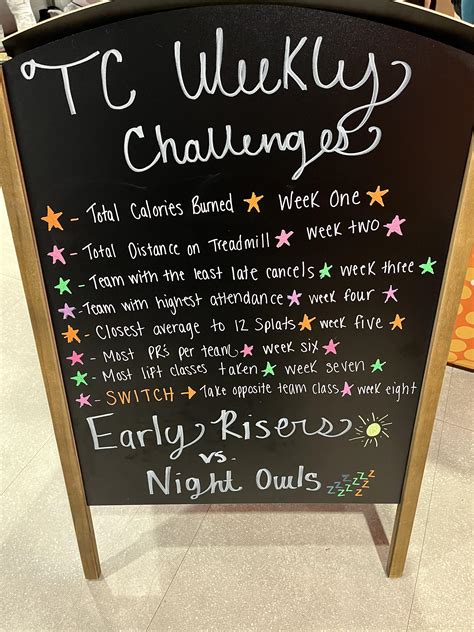 TC Weekly
Challenges
- Total Calories Burned Week One
- Total Distance on Treadmill week two
- Team with the least late cancels week three
- Team with highest attendance week four
- Closest average to 12 Splats week five
- Most PR's per team week six
- Most lift classes taken week seven
- SWITCH → Take opposite team class week eight
Early Risers
vs.
Night Owls zzzzzz